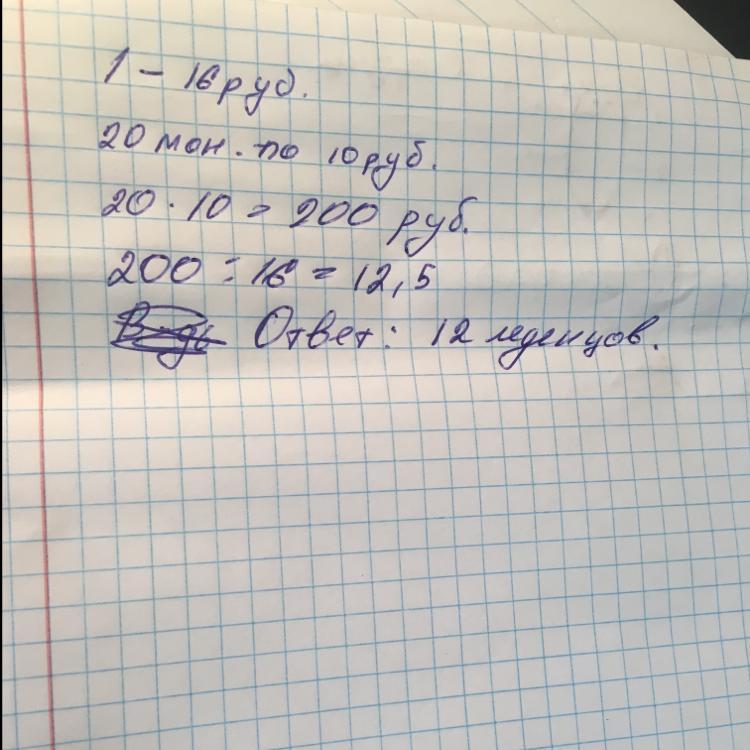 1 – 16 руб.
20 мон. по 10 руб.
20 · 10 = 200 руб.
200 : 16 = 12,5
Ответ: 12 леденцов.